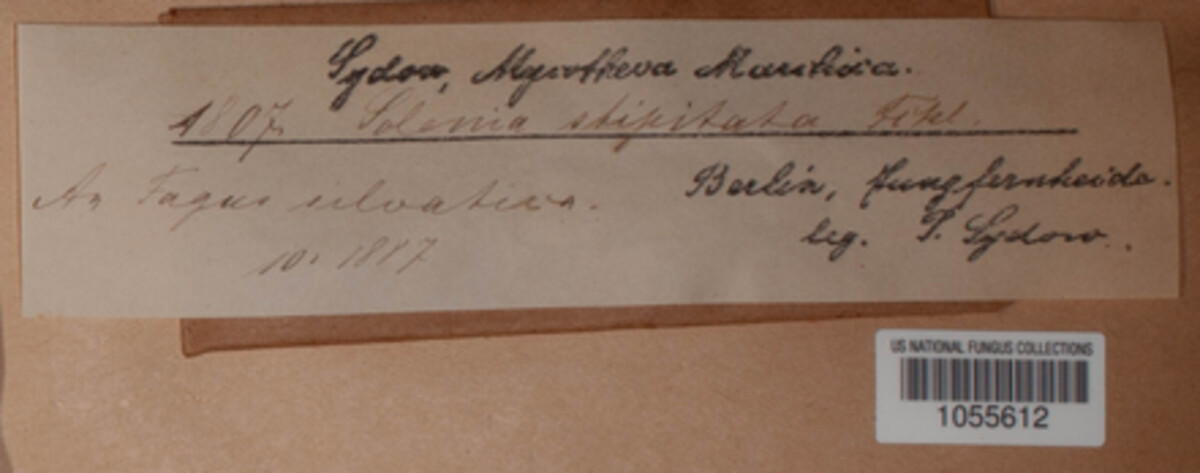 Sydow, Mycotheca Marchica.
1807. Solenia stipitata Fckl.
An Fagus silvatica.
Berlin, Jungfernheide.
10. 1887
leg. P. Sydow.
US NATIONAL FUNGUS COLLECTIONS
1055612